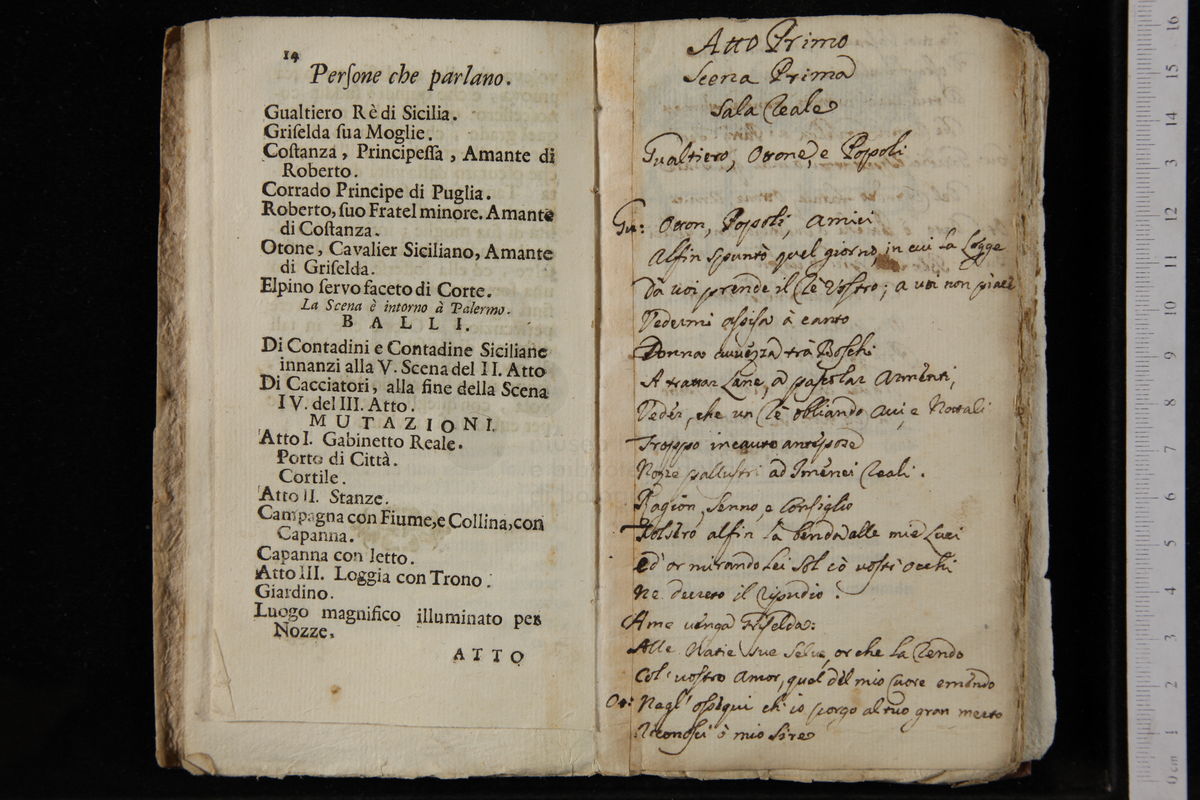 14
Perſone che parlano.
Gualtiero Rè di Sicilia.
Griſelda ſua Moglie.
Coſtanza, Principeſſa, Amante di
Roberto.
Corrado Principe di Puglia.
Roberto, ſuo Fratel minore. Amante
di Coſtanza.
Otone, Cavalier Siciliano, Amante
di Griſelda.
Elpino ſervo faceto di Corte.
La Scena è intorno à Palermo.
BALLI.
Di Contadini e Contadine Siciliane
innanzi alla V. Scena del II. Atto
Di Cacciatori, alla fine della Scena
IV. del III. Atto.
MUTAZIONI.
Atto I. Gabinetto Reale.
Porto di Città.
Cortile.
Atto II. Stanze.
Campagna con Fiume, e Collina, con
Capanna.
Capanna con letto.
Atto III. Loggia con Trono.
Giardino.
Luogo magnifico illuminato per
Nozze.
ATTO
Atto Primo
Scena Prima
Sala Reale
Gualtiero, Otone, e Popoli
Gu: Oton, Popoli, Amici
Alfin spuntò quel giorno, in cui la Legge
Da voi prende il Rè Vostro; a voi non piace
Vedermi assisa à canto
Donna avvezza trà Boschi
A trattar Lane, a pascolar Armenti,
Veder, che un Rè obliando Avi, e Natali
Troppo incauto antepose
Nozze pallustri ad Imenei Reali.
Ragion, Senno, e Consiglio
Tolsero alfin la benda alle mie Luci
Ed' or mirando Lei Sol cò vostri occhi
Ne decreto il ripudio:
A me venga Griselda:
Alle Natie sue Selve, or che la rendo
Col' vostro Amor, quel del mio Cuore emendo
Ot: Negl' ossequi ch' io porgo al tuo gran merto
Riconosci ò mio Sire